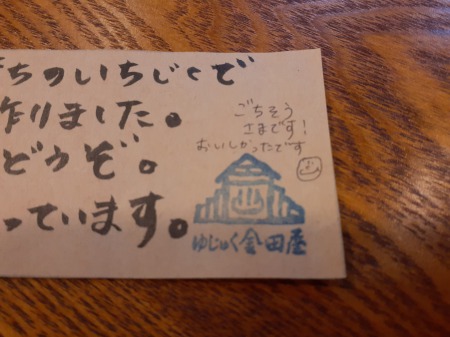 ちのいちじくで
作りました。
どうぞ。
っています。
ごちそう
さまです!
おいしかったです
ゆじゅく金田屋